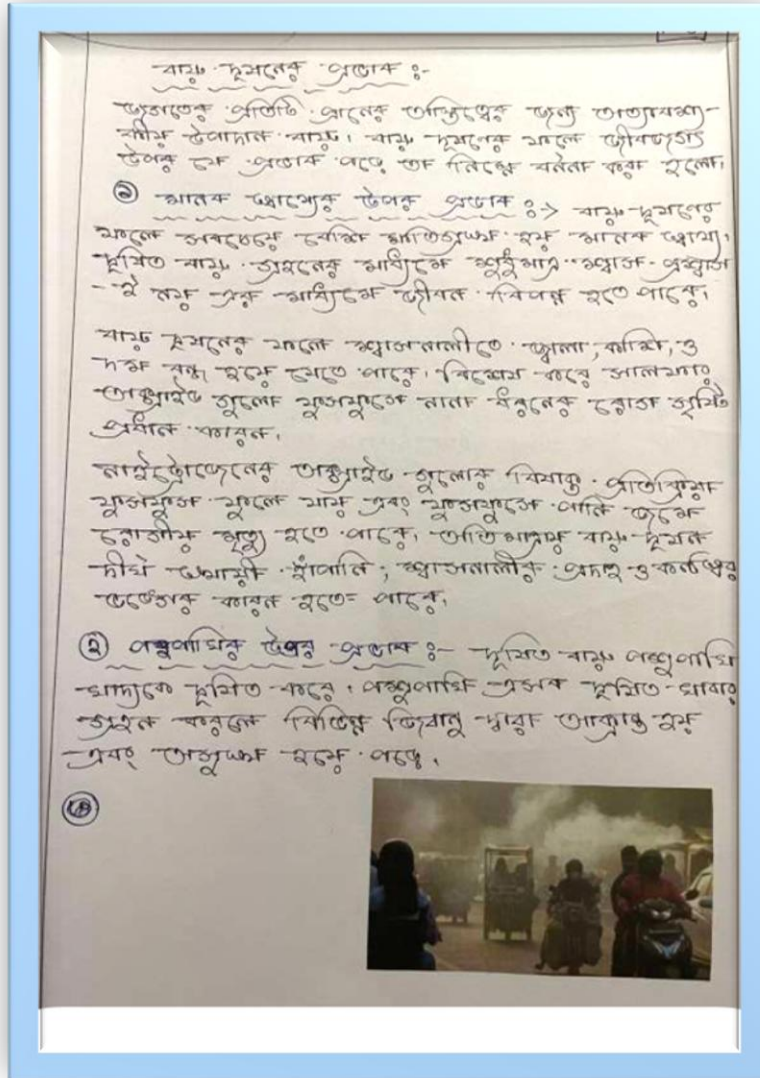 বায়ু দূষনের প্রভাব :-
জগতের প্রতিটি প্রানের অস্তিত্বের জন্য অত্যাবশ্য-
কীয় উপাদান বায়ু। বায়ু দূষণের ফলে জীবজগৎ
উপর যে প্রভাব পড়ে তা নিম্নে বর্ননা করা হলো।
① মানব স্বাস্থ্যের উপর প্রভাব :→ বায়ু দূষণের
ফলে সবচেয়ে বেশি ক্ষতিগ্রস্থ হয় মানব স্বাস্থ্য।
দূষিত বায়ু গ্রহনের মাধ্যিমে শুধুমাত্র শ্বাস-প্রশ্বাস
-ই নয় এর মাধ্যিমে জীবন বিপন্ন হতে পারে।
বায়ু দূষনের ফলে শ্বাসনালীতে জ্বালা, কাশি, ও
দম বন্ধ হয়ে যেতে পারে। বিশেষ করে সালফার
অক্সাইড গুলো ফুসফুসে নানা ধরনের রোগ সৃষ্টি
প্রধান কারন।
নাইট্রোজেনের অক্সাইড গুলোর বিষাক্ত প্রতিক্রিয়া
ফুসফুস ফুলে যায় এবং ফুসফুসে পানি জমে
রোগীয় মৃত্যু হতে পারে। অতিমাত্রায় বায়ু দূষন
দীর্ঘ স্থায়ী হাঁপানি, শ্বাসনালীর প্রদাহ ও কন্ঠস্বর
ভঙ্গের কারন হতে পারে।
② পশুপাখির উপর প্রভাব :- দূষিত বায়ু পশুপাখি
খাদ্যকে দূষিত করে। পশুপাখি এসব দূষিত খাবার
গ্রহন করলে বিভিন্ন জিবানু দ্বারা আক্রান্ত হয়
এবং অসুস্থ হয়ে পড়ে।
③